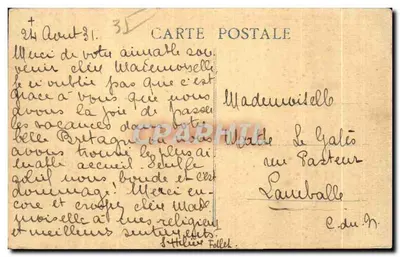 +
24 Aout 31.
CARTE POSTALE
Merci de votre aimable sou-
venir chère Mademoiselle
Je n'oublie pas que c'est
grâce à vous que nous
avons la joie de passer
les vacances dans
belle Bretagne
avons trouvé le plus ai-
mable accueil
soleil nous boude et c'est
dommage! Merci en-
core et croyez chère Made
moiselle à mes religieux
et meilleurs sentiments.
Mademoiselle
Marthe Le Galès
rue Pasteur
Lamballe
C. du. N.
CPRPHIL